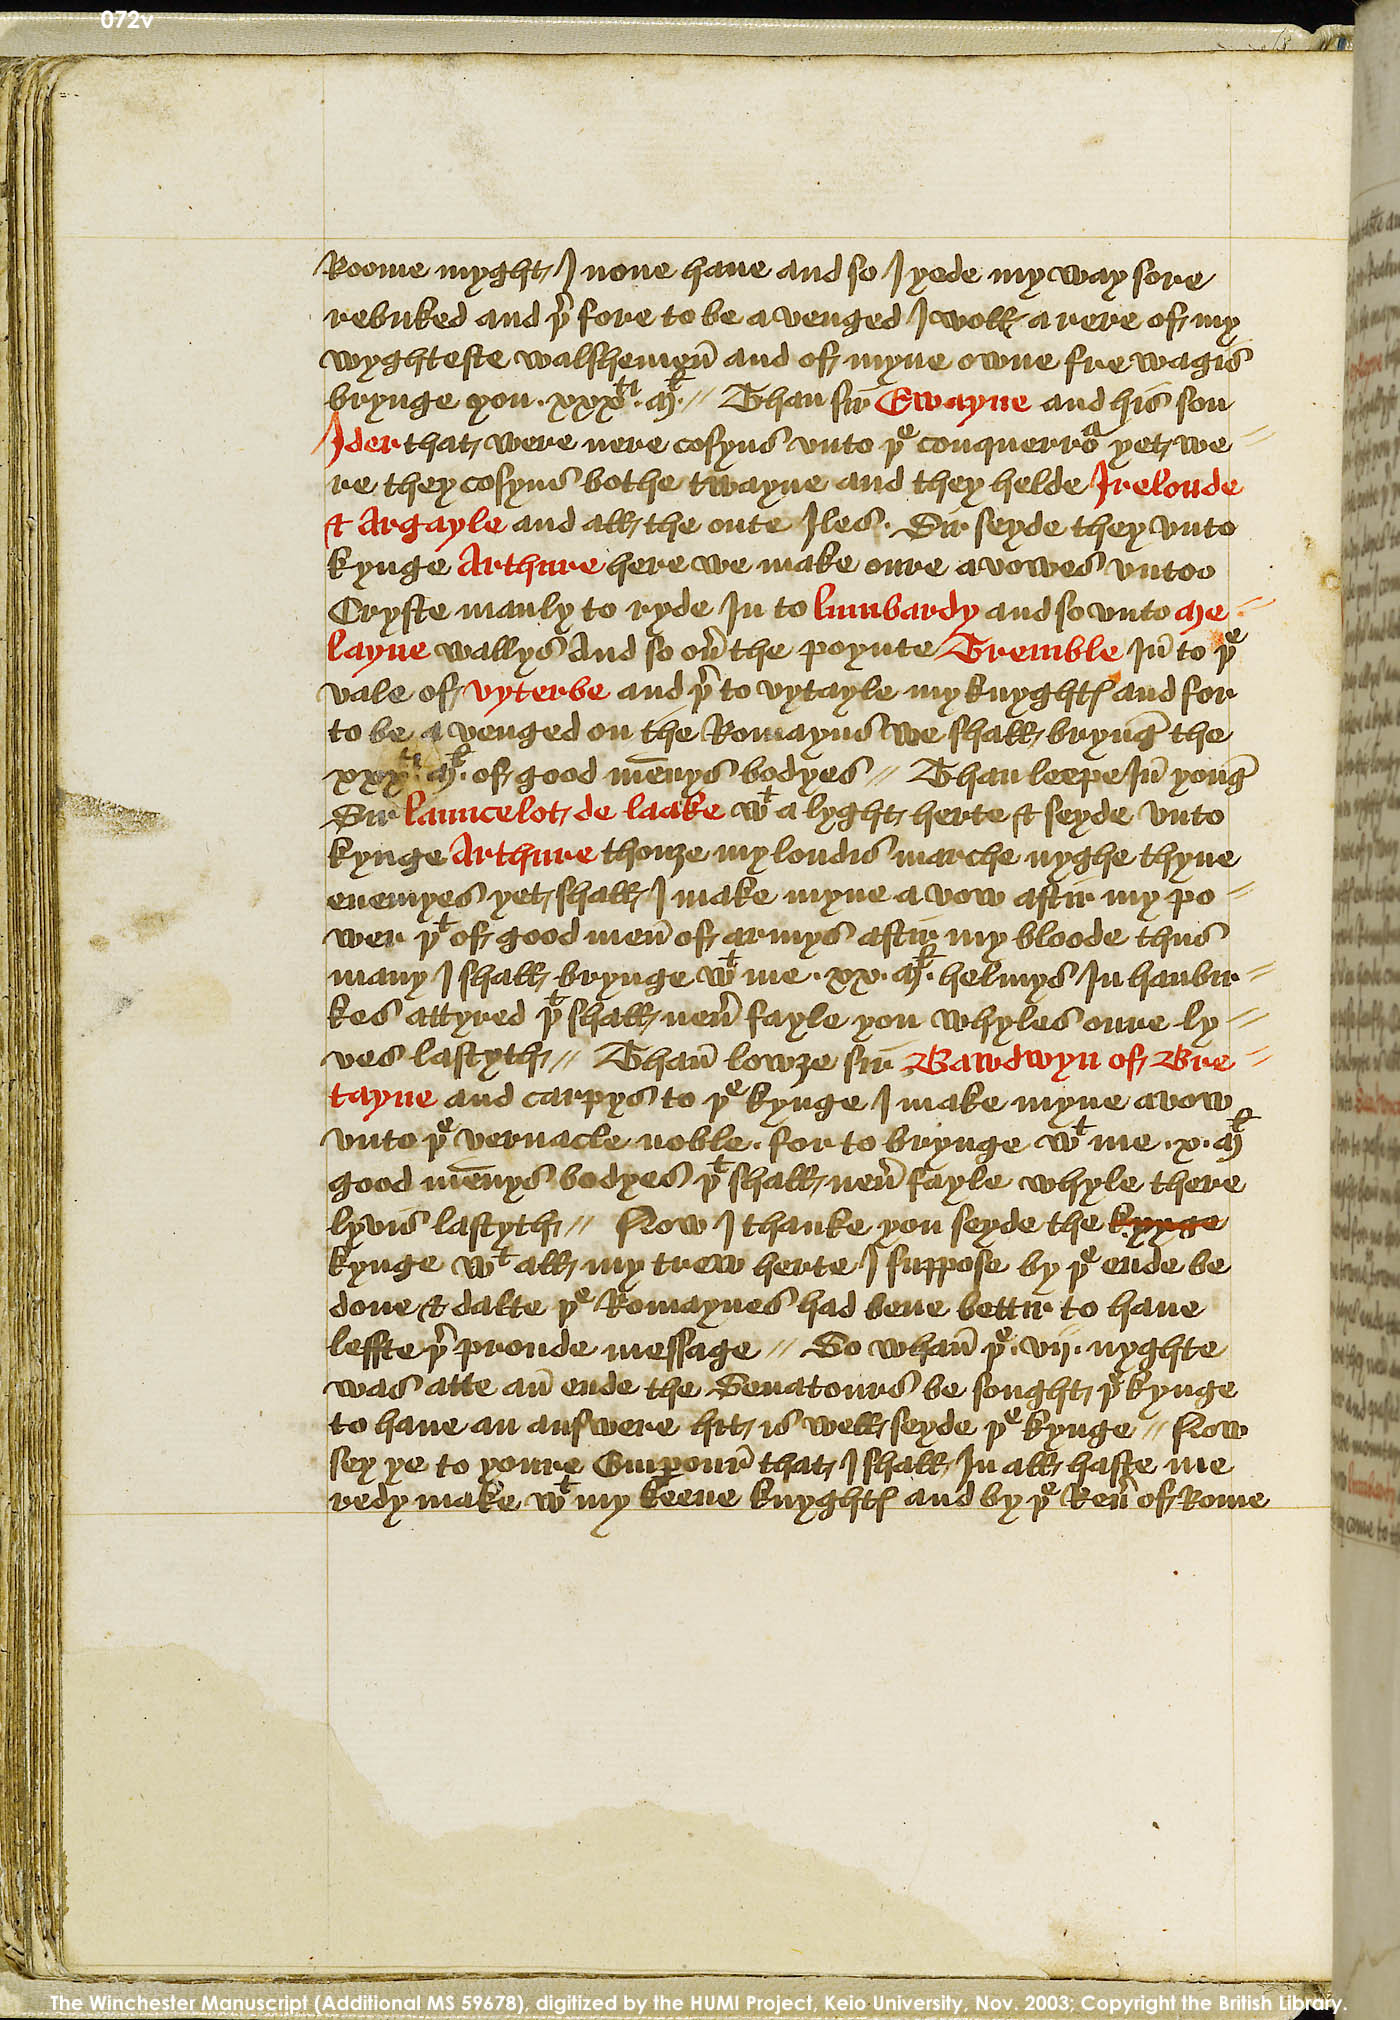 072v
Roome myght I none haue and so I yede my way sore
rebuked and þͬ fore to be a venged I woll a rere of my
wyghteste walshemen̄ and of myne owne fre wagis
brynge you · xxxᵗⁱ · Mˡ · // Than sir Ewayne and his son
Ider that were nere cosyns vnto þᵉ conquerroᵃ yet we =
re they cosyns bothe twayne and they helde Irelonde
& Argayle and all the oute Iles · Sir seyde they vnto
kynge Arthure here we make oure avowes vntoo
Cryste manly to ryde In to lumbardy and so vnto Me =
layne wallys And so on̄ the poynte Tremble In̄ to þᵉ
vale of vyterbe and þͬ to vytayle my knyghtꝭ and for
to be a venged on the Romayns we shall brynḡ the
xxxᵗⁱ · Mˡ · of good men̄ys bodyes // Than leepe In̄ yonḡ
Sir launcelot de laake wᵗ a lyght herte & seyde vnto
kynge Arthure thouze my londis marche nyghe thyne
enemyes yet shall I make myne a vow aftir my po =
wer þᵗ of good men̄ of armys aftir my bloode thus
many I shall brynge wᵗ me · xx · Mˡ · helmys In haubir =
kes attyred þᵗ shall neū fayle you whyles oure ly =
ves lastyth // Than̄ lowze sir Bawdwyn of Bre =
tayne and carpys to þᵉ kynge I make myne avow
vnto þᵉ vernacle noble · for to brynge wᵗ me · x · Mˡ
good men̄ys bodyes þᵗ shall neū fayle whyle there
lyvis lastyth // Now I thanke you seyde the kynge
kynge wᵗ all my trew herte I suppose by þᵉ ende be
done & dalte þᵉ Romaynes had bene bettir to haue
leffte þͬ proude message // So whan̄ þᵉ · vii · nyghte
was atte an̄ ende the Senatours be sought þᵉ kynge
to haue an answere hit is well seyde þᵉ kynge // Now
sey ye to youre Emꝑour̄ that I shall In all haste me
redy make wᵗ my keene knyghtꝭ and by þᵉ Reū of Rome
The Winchester Manuscript (Additional MS 59678), digitized by the HUMI Project, Keio University, Nov. 2003; Copyright the British Library.